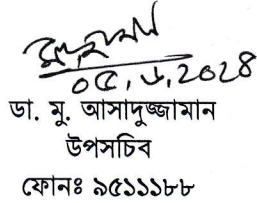 ০৫.৬.2028
ডা. মু. আসাদুজ্জামান
উপসচিব
ফোনঃ ৯৫১১১৮৮